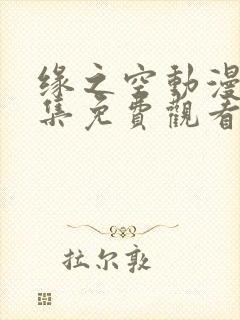 缘之空動漫
集免費觀看
拉尔敦